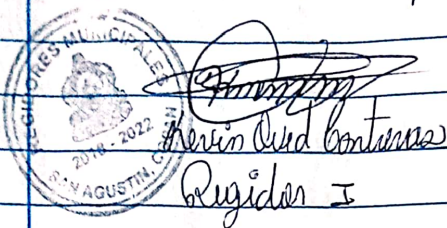 REGIDORES MUNICIPALES
2018 - 2022
SAN AGUSTIN, COPAN
Kevin Oved Contreras
Regidor I